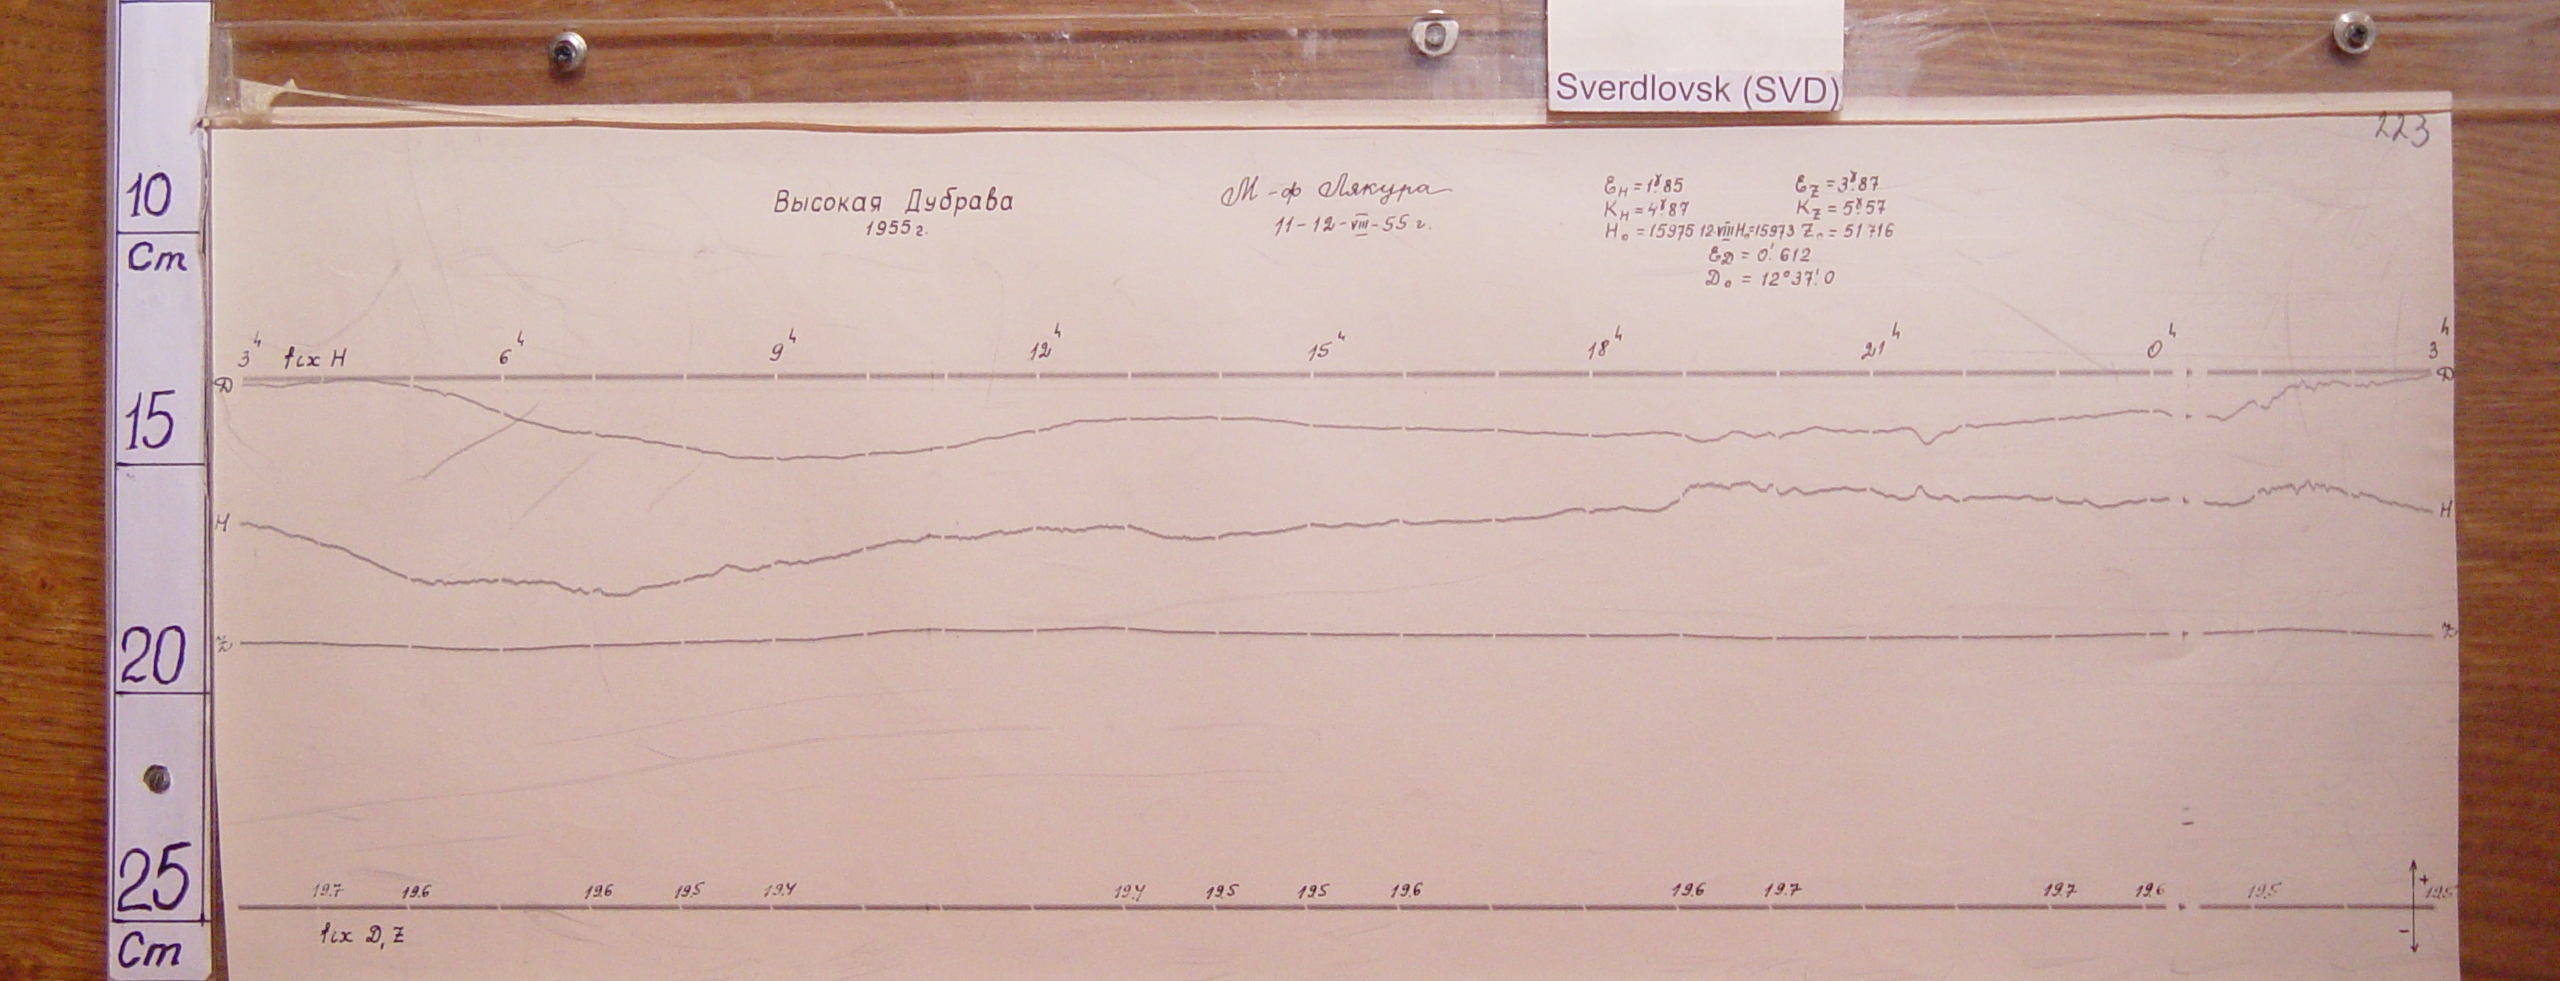 Sverdlovsk (SVD)
223
10
Cm
15
20
25
Cm
Высокая Дубрава
1955 г.
М-ф Лякура
11-12-VIII-55 г.
ε_H = 1ᵞ.85 ε_Z = 3ᵞ.87
K_H = 4ᵞ.87 K_Z = 5ᵞ.57
H₀ = 15975 12.VIII H₀=15973 Z₀ = 51716
ε_D = 0'.612
D₀ = 12°37'.0
3ʰ 6ʰ 9ʰ 12ʰ 15ʰ 18ʰ 21ʰ 0ʰ 3ʰ
fix H
D D
H H
Z Z
19.7 19.6 19.6 19.5 19.4 19.4 19.5 19.5 19.6 19.6 19.7 19.7 19.6 19.5 19.5
+
-
fix D, Z